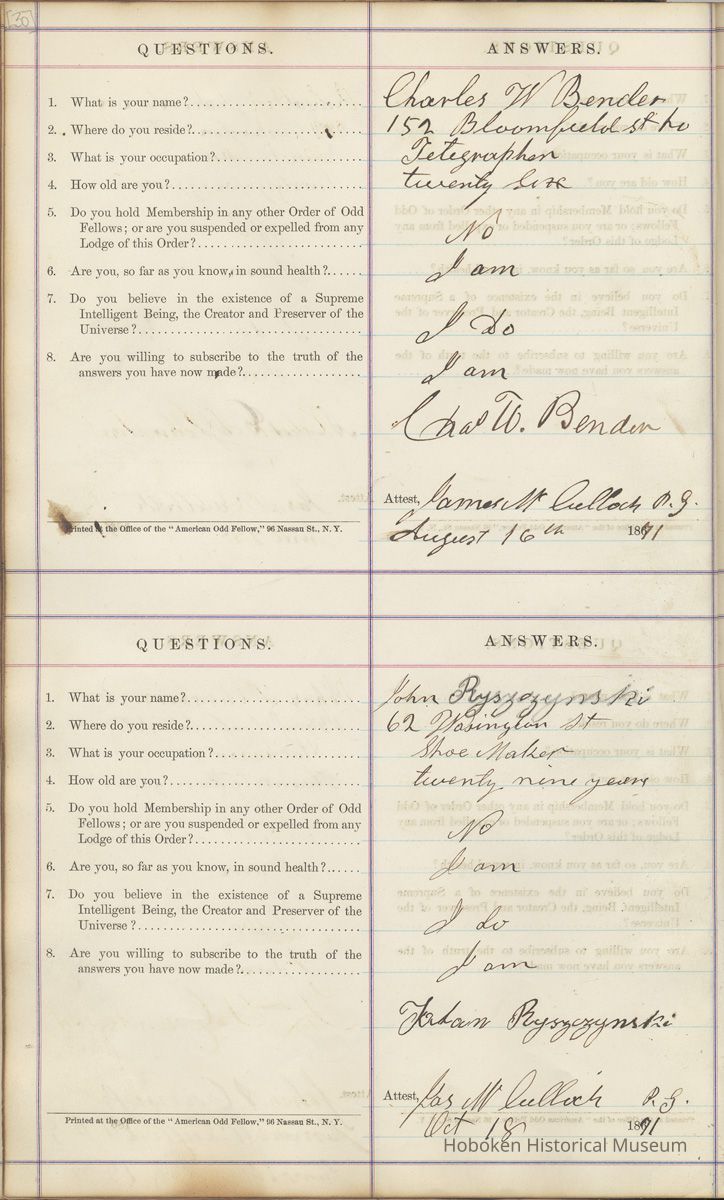 [30]
QUESTIONS.
ANSWERS.
1. What is your name?
Charles W Bender
2. Where do you reside?
152 Bloomfield st Ho
3. What is your occupation?
Telegrapher
4. How old are you?
twenty Six
5. Do you hold Membership in any other Order of Odd
Fellows; or are you suspended or expelled from any
Lodge of this Order?
No
6. Are you, so far as you know, in sound health?
I am
7. Do you believe in the existence of a Supreme
Intelligent Being, the Creator and Preserver of the
Universe?
I Do
8. Are you willing to subscribe to the truth of the
answers you have now made?
I am
Chas W. Bender
Attest, James McCulloch P.G.
Printed at the Office of the "American Odd Fellow," 96 Nassau St., N. Y.
August 16th 1871
QUESTIONS.
ANSWERS.
1. What is your name?
John Ryszczynski
2. Where do you reside?
62 Wasington St
3. What is your occupation?
Shoe Maker
4. How old are you?
twenty nine years
5. Do you hold Membership in any other Order of Odd
Fellows; or are you suspended or expelled from any
Lodge of this Order?
No
6. Are you, so far as you know, in sound health?
I am
7. Do you believe in the existence of a Supreme
Intelligent Being, the Creator and Preserver of the
Universe?
I do
8. Are you willing to subscribe to the truth of the
answers you have now made?
I am
Ryszczynski
Attest, Jas McCulloch P.G.
Printed at the Office of the "American Odd Fellow," 96 Nassau St., N. Y.
Oct 18 1871
Hoboken Historical Museum